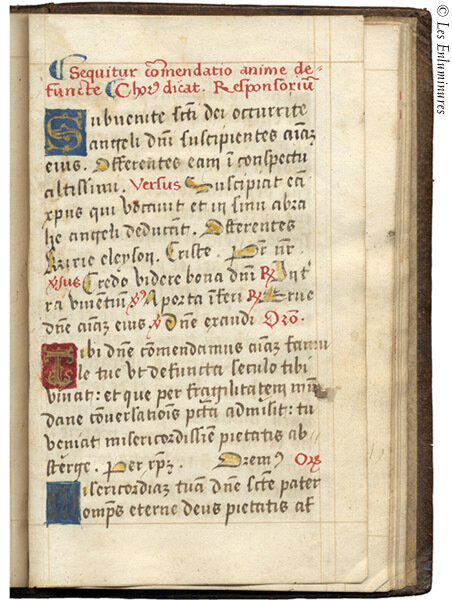 © Les Enluminures
Sequitur cõmendatio anime de-
functe Chorꝰ dicat. Responsoriũ
Subvenite scti dei occurrite
angeli dñi suscipientes aĩaz
eius. Offerentes eam ĩ conspectu
altissimi. Versus Suscipiat eã
xp̃us qui vocavit et in sinu abra
he angeli deducãt. Offerentes
Kirie eleyson. Criste. Pater nr̃.
Credo videre bona dñi In t
ra viventiũ A porta ĩferi Erue
dñe aĩaz eius Dñe exaudi Orõ.
Tibi dñe cõmendamus aĩaz famu
le tue vt defuncta seculo tibi
vivat: et que per fragilitatem mũ
dane cõversationis pctã admisit: tu
veniat misericordissĩe pietatis ab
sterge. Per xp̃z. Oremꝰ Orõ
Misericordiaz tuã dñe scte pater
omp̃s eterne deus pietatis af